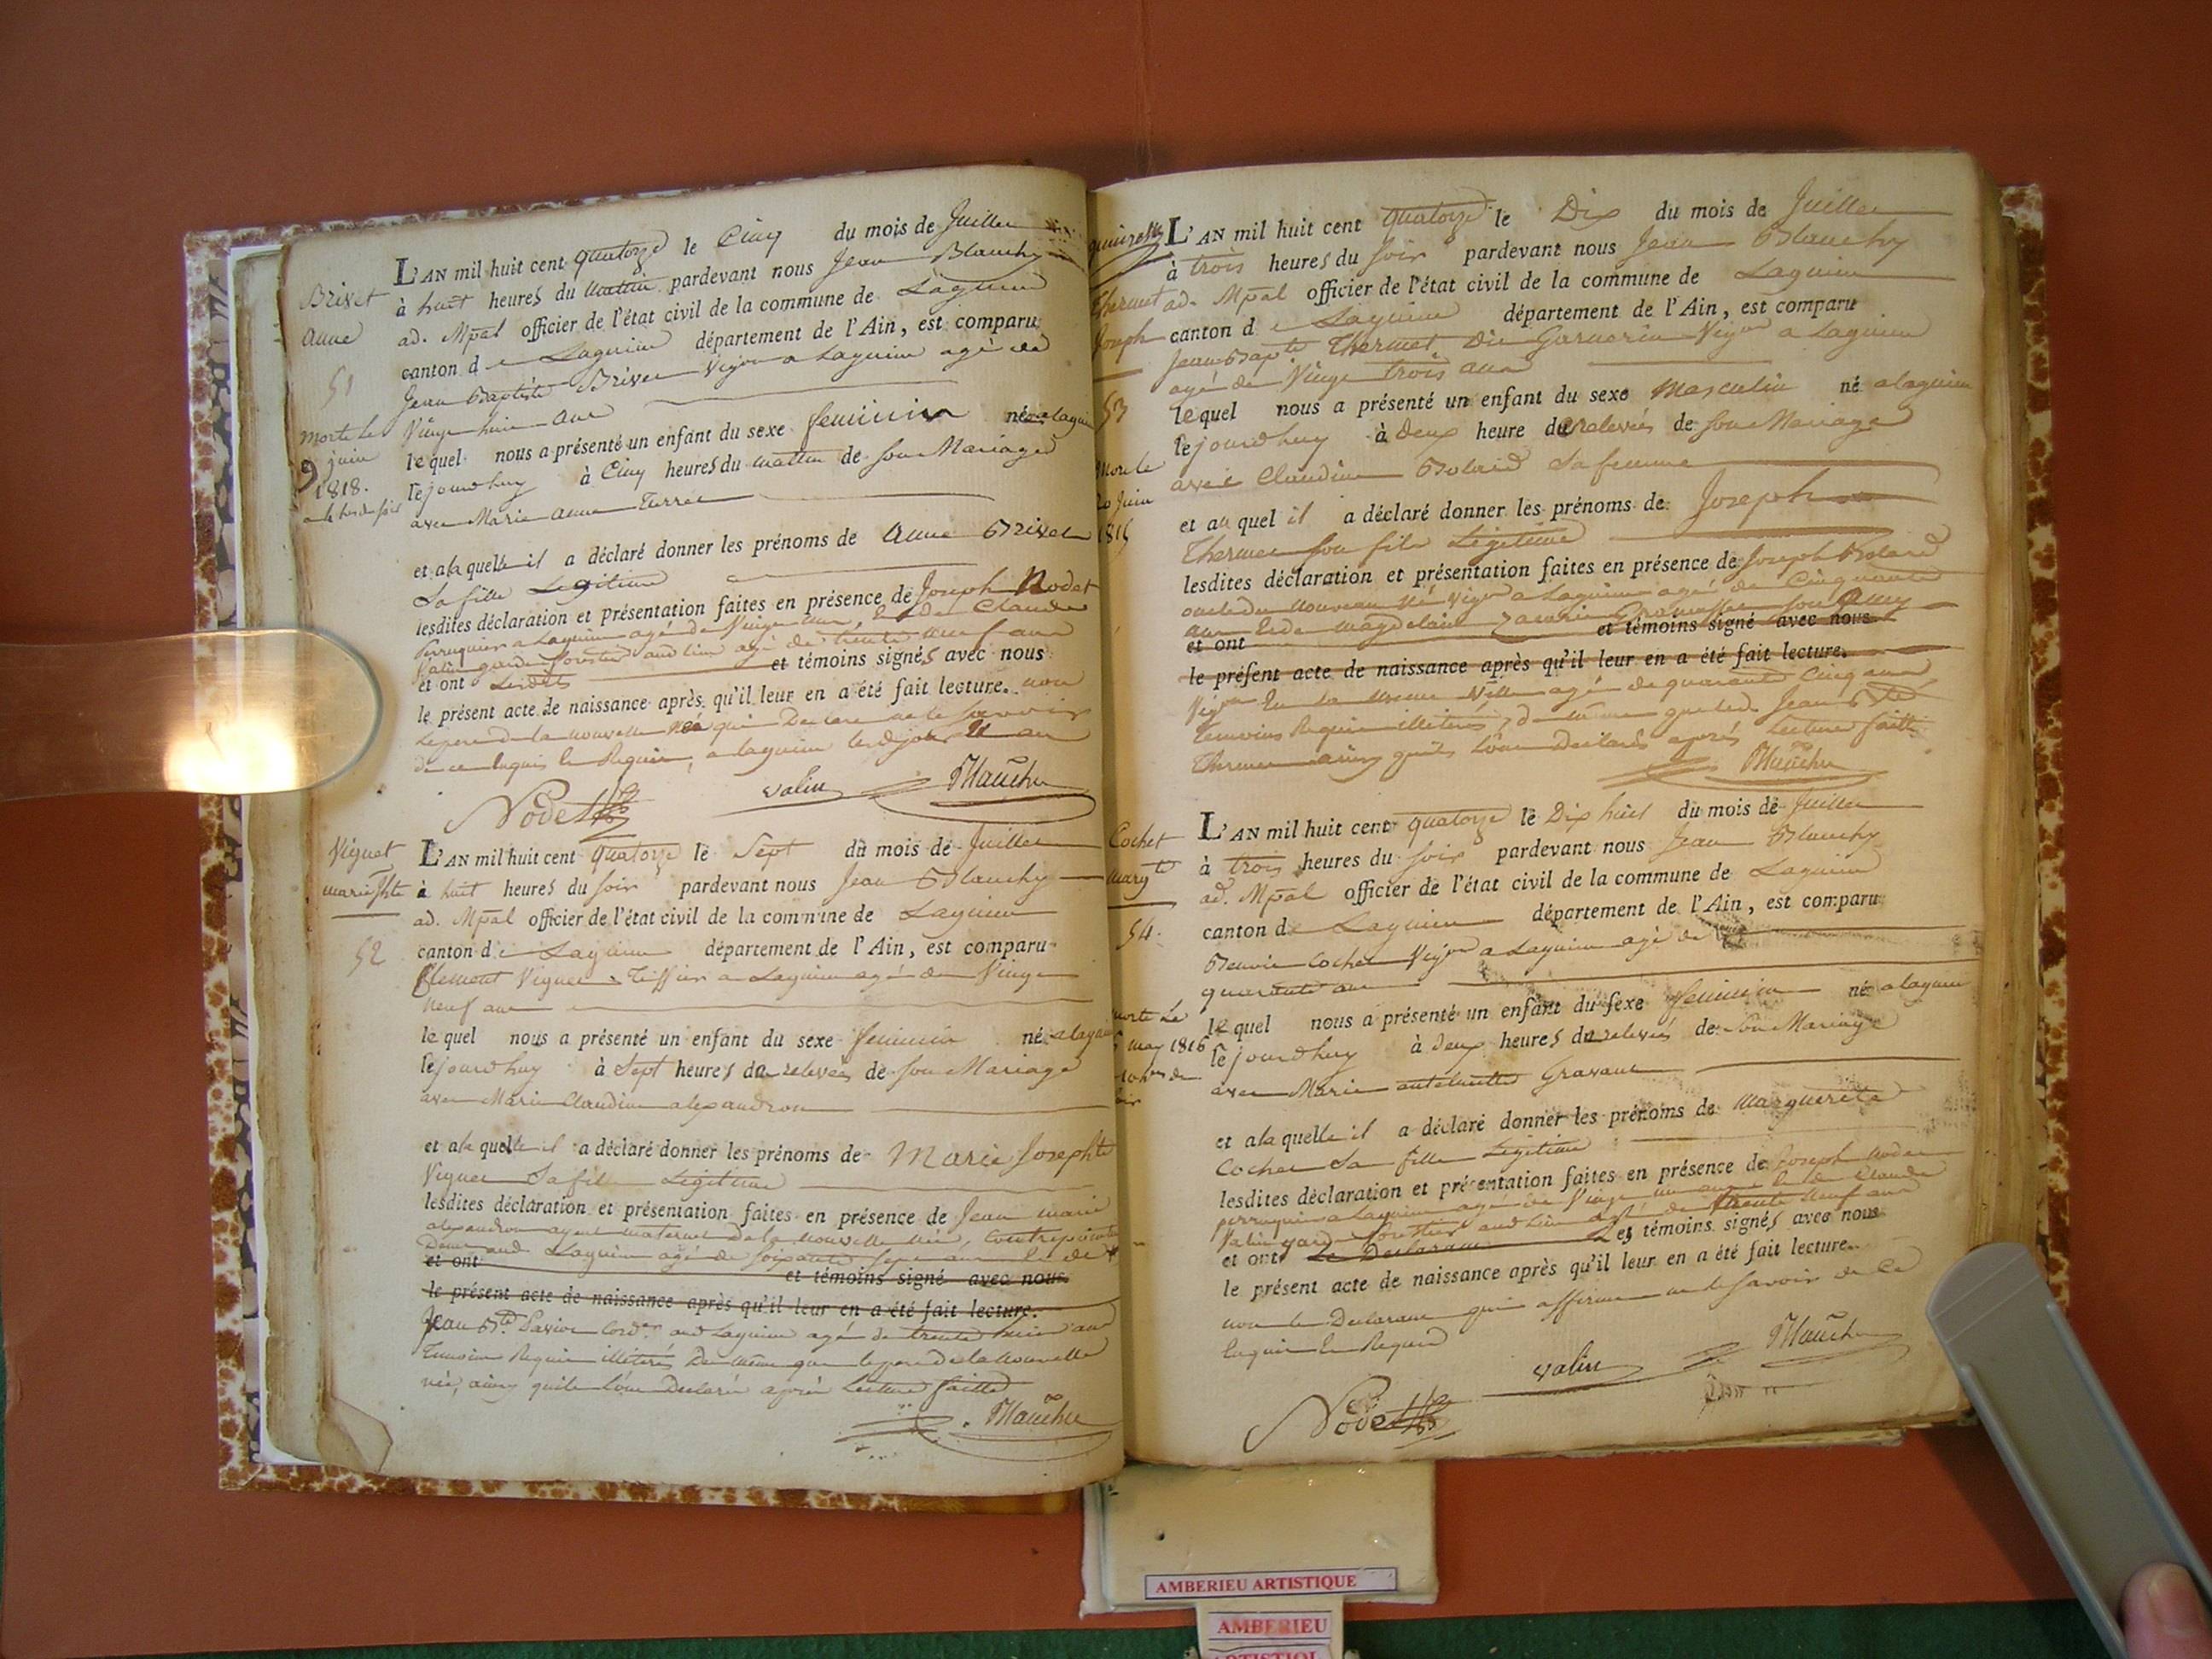 Brivet
anne
51
morte le
9 juin
1818.
L'AN mil huit cent quatorze le Cinq du mois de Juillet
à huit heures du mattin pardevant nous Jean Blanchy
ad. Mpal officier de l'état civil de la commune de Lagnieu
canton de Lagnieu département de l'Ain, est comparu
Jean Baptiste Brivet Vigon a Lagnieu agé de
Vingt huit ans
lequel nous a présenté un enfant du sexe feminin née a lagnieu
lejourdhuy à Cinq heures du mattin de son Mariage
avec Marie anne Terret
et alaquelle il a déclaré donner les prénoms de anne Brivet
Sa fille Legitime
lesdites déclaration et présentation faites en présence de Joseph Nodet
perruquier a Lagnieu agé de Vingt un ans, Et de Claude
Valin garde forestier aud lieu agé de trente neuf ans
et ont Lesdits et témoins signés avec nous
le présent acte de naissance après qu'il leur en a été fait lecture. non
Le pere de la nouvelle née qui Declare ne le savoir
de ce Enquis Et Requis, a lagnieu lesd jour et an
Nodet valin Blanchy
Viguet
marie Jhte
52
L'AN mil huit cent quatorze le Sept du mois de Juillet
à huit heures du soir pardevant nous Jean Blanchy
ad. Mpal officier de l'état civil de la commune de Lagnieu
canton de Lagnieu département de l'Ain, est comparu
Clement Viguet Tissier a Lagnieu agé de Vingt
neuf ans
lequel nous a présenté un enfant du sexe feminin née a lagnieu
lejourdhuy à Sept heures de relevée de son Mariage
avec Marie Claudine alexandron
et alaquelle il a déclaré donner les prénoms de Marie Josephte
Viguet Sa fille Legitime
lesdites déclaration et présentation faites en présence de Jean marie
alexandron ayeul maternel de la nouvelle née, Contrepointier
Demt aud Lagnieu agé de soixante sept ans Et de
et ont et témoins signé avec nous
le présent acte de naissance après qu'il leur en a été fait lecture.
Jean Bte Savier Cordr aud Lagnieu agé de trente huit ans
Temoins Requis illiterés De même que le pere de la Nouvelle
née, ainsy quils l'ont Declaré aprés Lecture faitte
Blanchy
Thermet
Joseph
53
20 Juin
L'AN mil huit cent quatorze le Dix du mois de Juillet
à trois heures du soir pardevant nous Jean Blanchy
ad. Mpal officier de l'état civil de la commune de Lagnieu
canton de Lagnieu département de l'Ain, est comparu
Jean Bapte Thermet Dit Garnerin Vigon a Lagnieu
agé de Vingt trois ans
lequel nous a présenté un enfant du sexe Masculin né a lagnieu
lejourdhuy à deux heure de relevée de son Mariage
avec Claudine Bolard Sa femme
et auquel il a déclaré donner les prénoms de Joseph
Thermet son fils Légitime
lesdites déclaration et présentation faites en présence de Joseph Bolard
oncle du nouveau né Vigon a Lagnieu agé de Cinquante
ans Et de Magdelaine
et ont et témoins signé avec nous
le présent acte de naissance après qu'il leur en a été fait lecture.
Vigon En la meme Ville agée de quarante Cinq ans
Temoins Requis illiterés, de même que led. Jean Bte
Thermet ainsy quils L'ont Declarés aprés Lecture faitte
Blanchy
Cochet
margte
54.
morte Le
may 1816
L'AN mil huit cent quatorze le Dix huit du mois de Juillet
à trois heures du soir pardevant nous Jean Blanchy
ad. Mpal officier de l'état civil de la commune de Lagnieu
canton de Lagnieu département de l'Ain, est comparu
Benoit Cochet Vigon a Lagnieu agé de
quarante ans
lequel nous a présenté un enfant du sexe feminin née a lagnieu
lejourdhuy à deux heures de relevée de son Mariage
avec Marie antelmette Gravant
et alaquelle il a déclaré donner les prénoms de marguerite
Cochet Sa fille Legitime
lesdites déclaration et présentation faites en présence de Joseph Nodet
perruquier a Lagnieu agé de Vingt un ans Et de Claude
Valin garde forestier aud lieu agé de trente neuf ans
et ont Le Declarant et témoins signés avec nous
le présent acte de naissance après qu'il leur en a été fait lecture.
non le Declarant qui affirme ne le savoir de Ce
Enquis Et Requis
Nodet valin Blanchy
AMBERIEU ARTISTIQUE
AMBERIEU